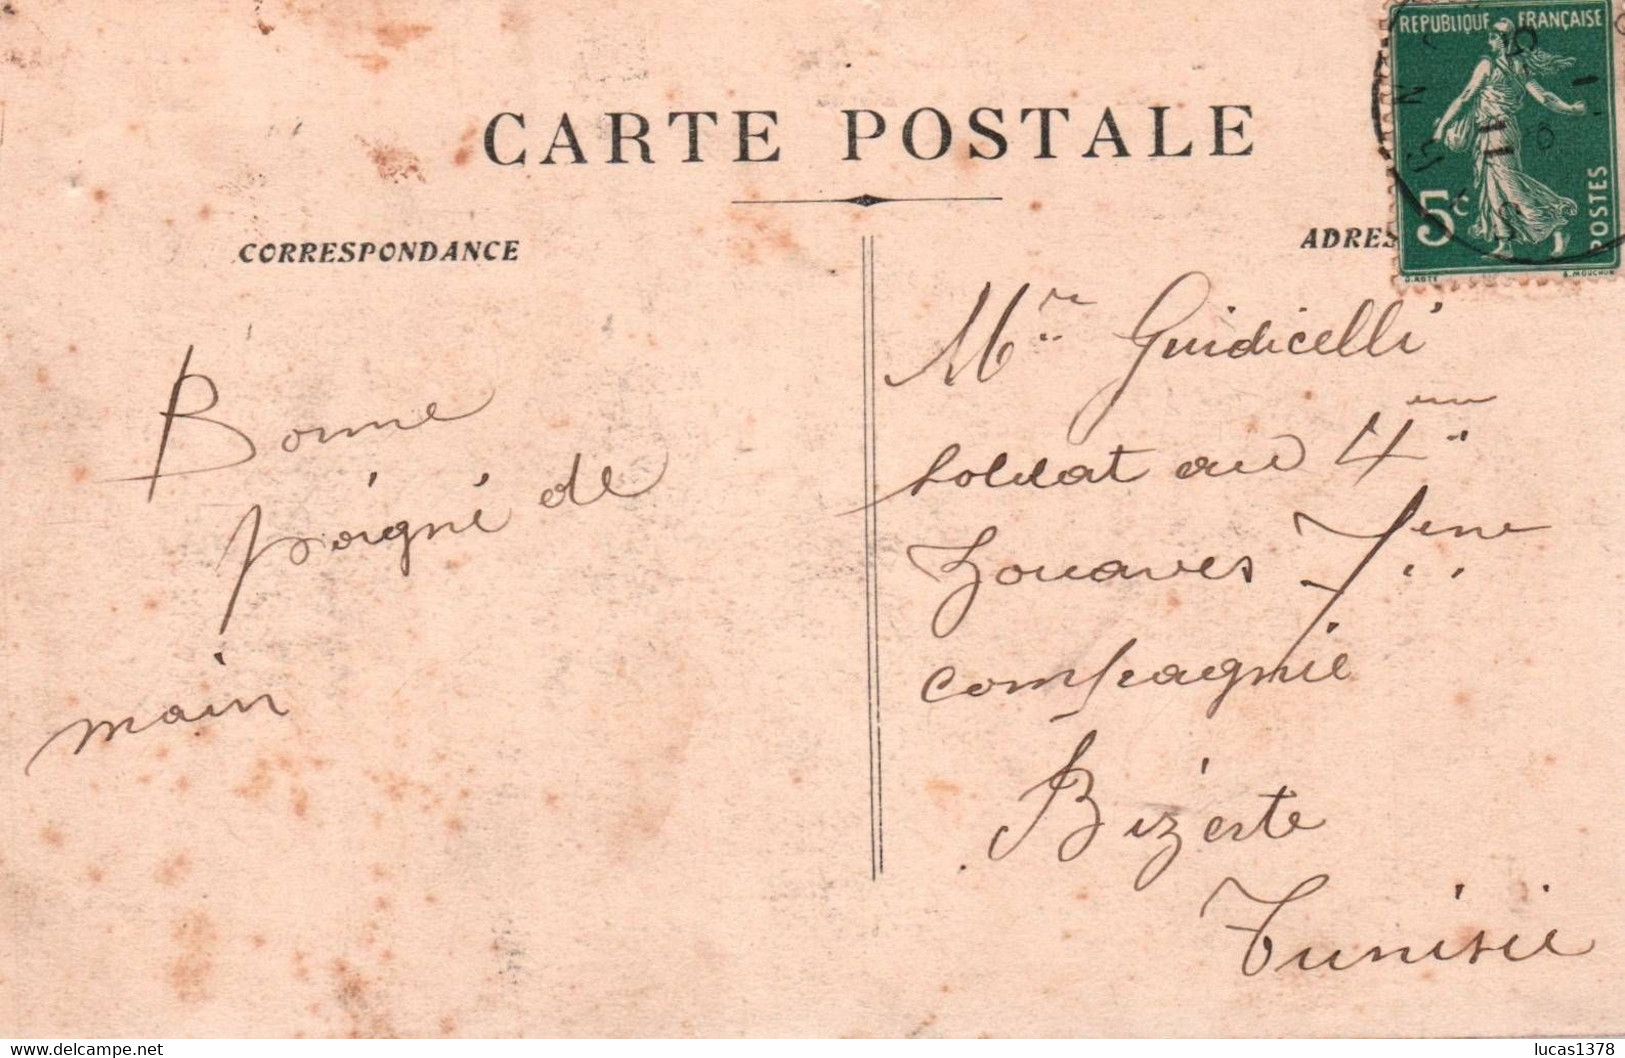 CARTE POSTALE
CORRESPONDANCE
ADRES
REPUBLIQUE FRANÇAISE
5c
POSTES
O. ROTY
E. MOUCHON
Bonne
poigné de
main
Mr Guidicelli
soldat au 4eme
Zouaves 7eme
compagnie
Bizerte
Tunisie
www.delcampe.net
lucas1378